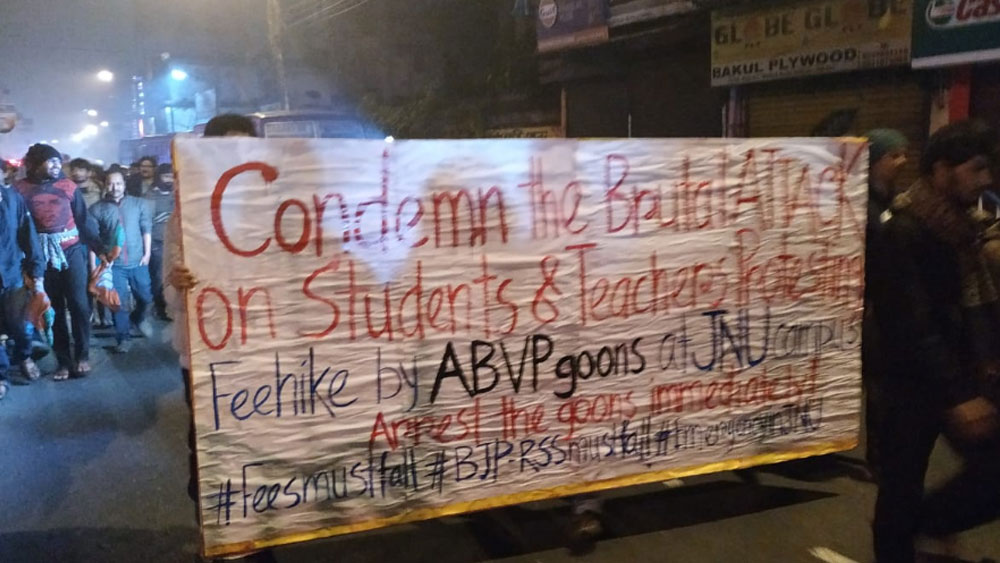 GLOBE GLOBE
BAKUL PLYWOOD
Cas
Condemn the Brutal ATTACK
on Students & Teachers Protesting
Feehike by ABVP goons at JNU campus
Arrest the goons immediately!
#Feesmustfall #BJP-RSSmustfall #EmergencyinJNU